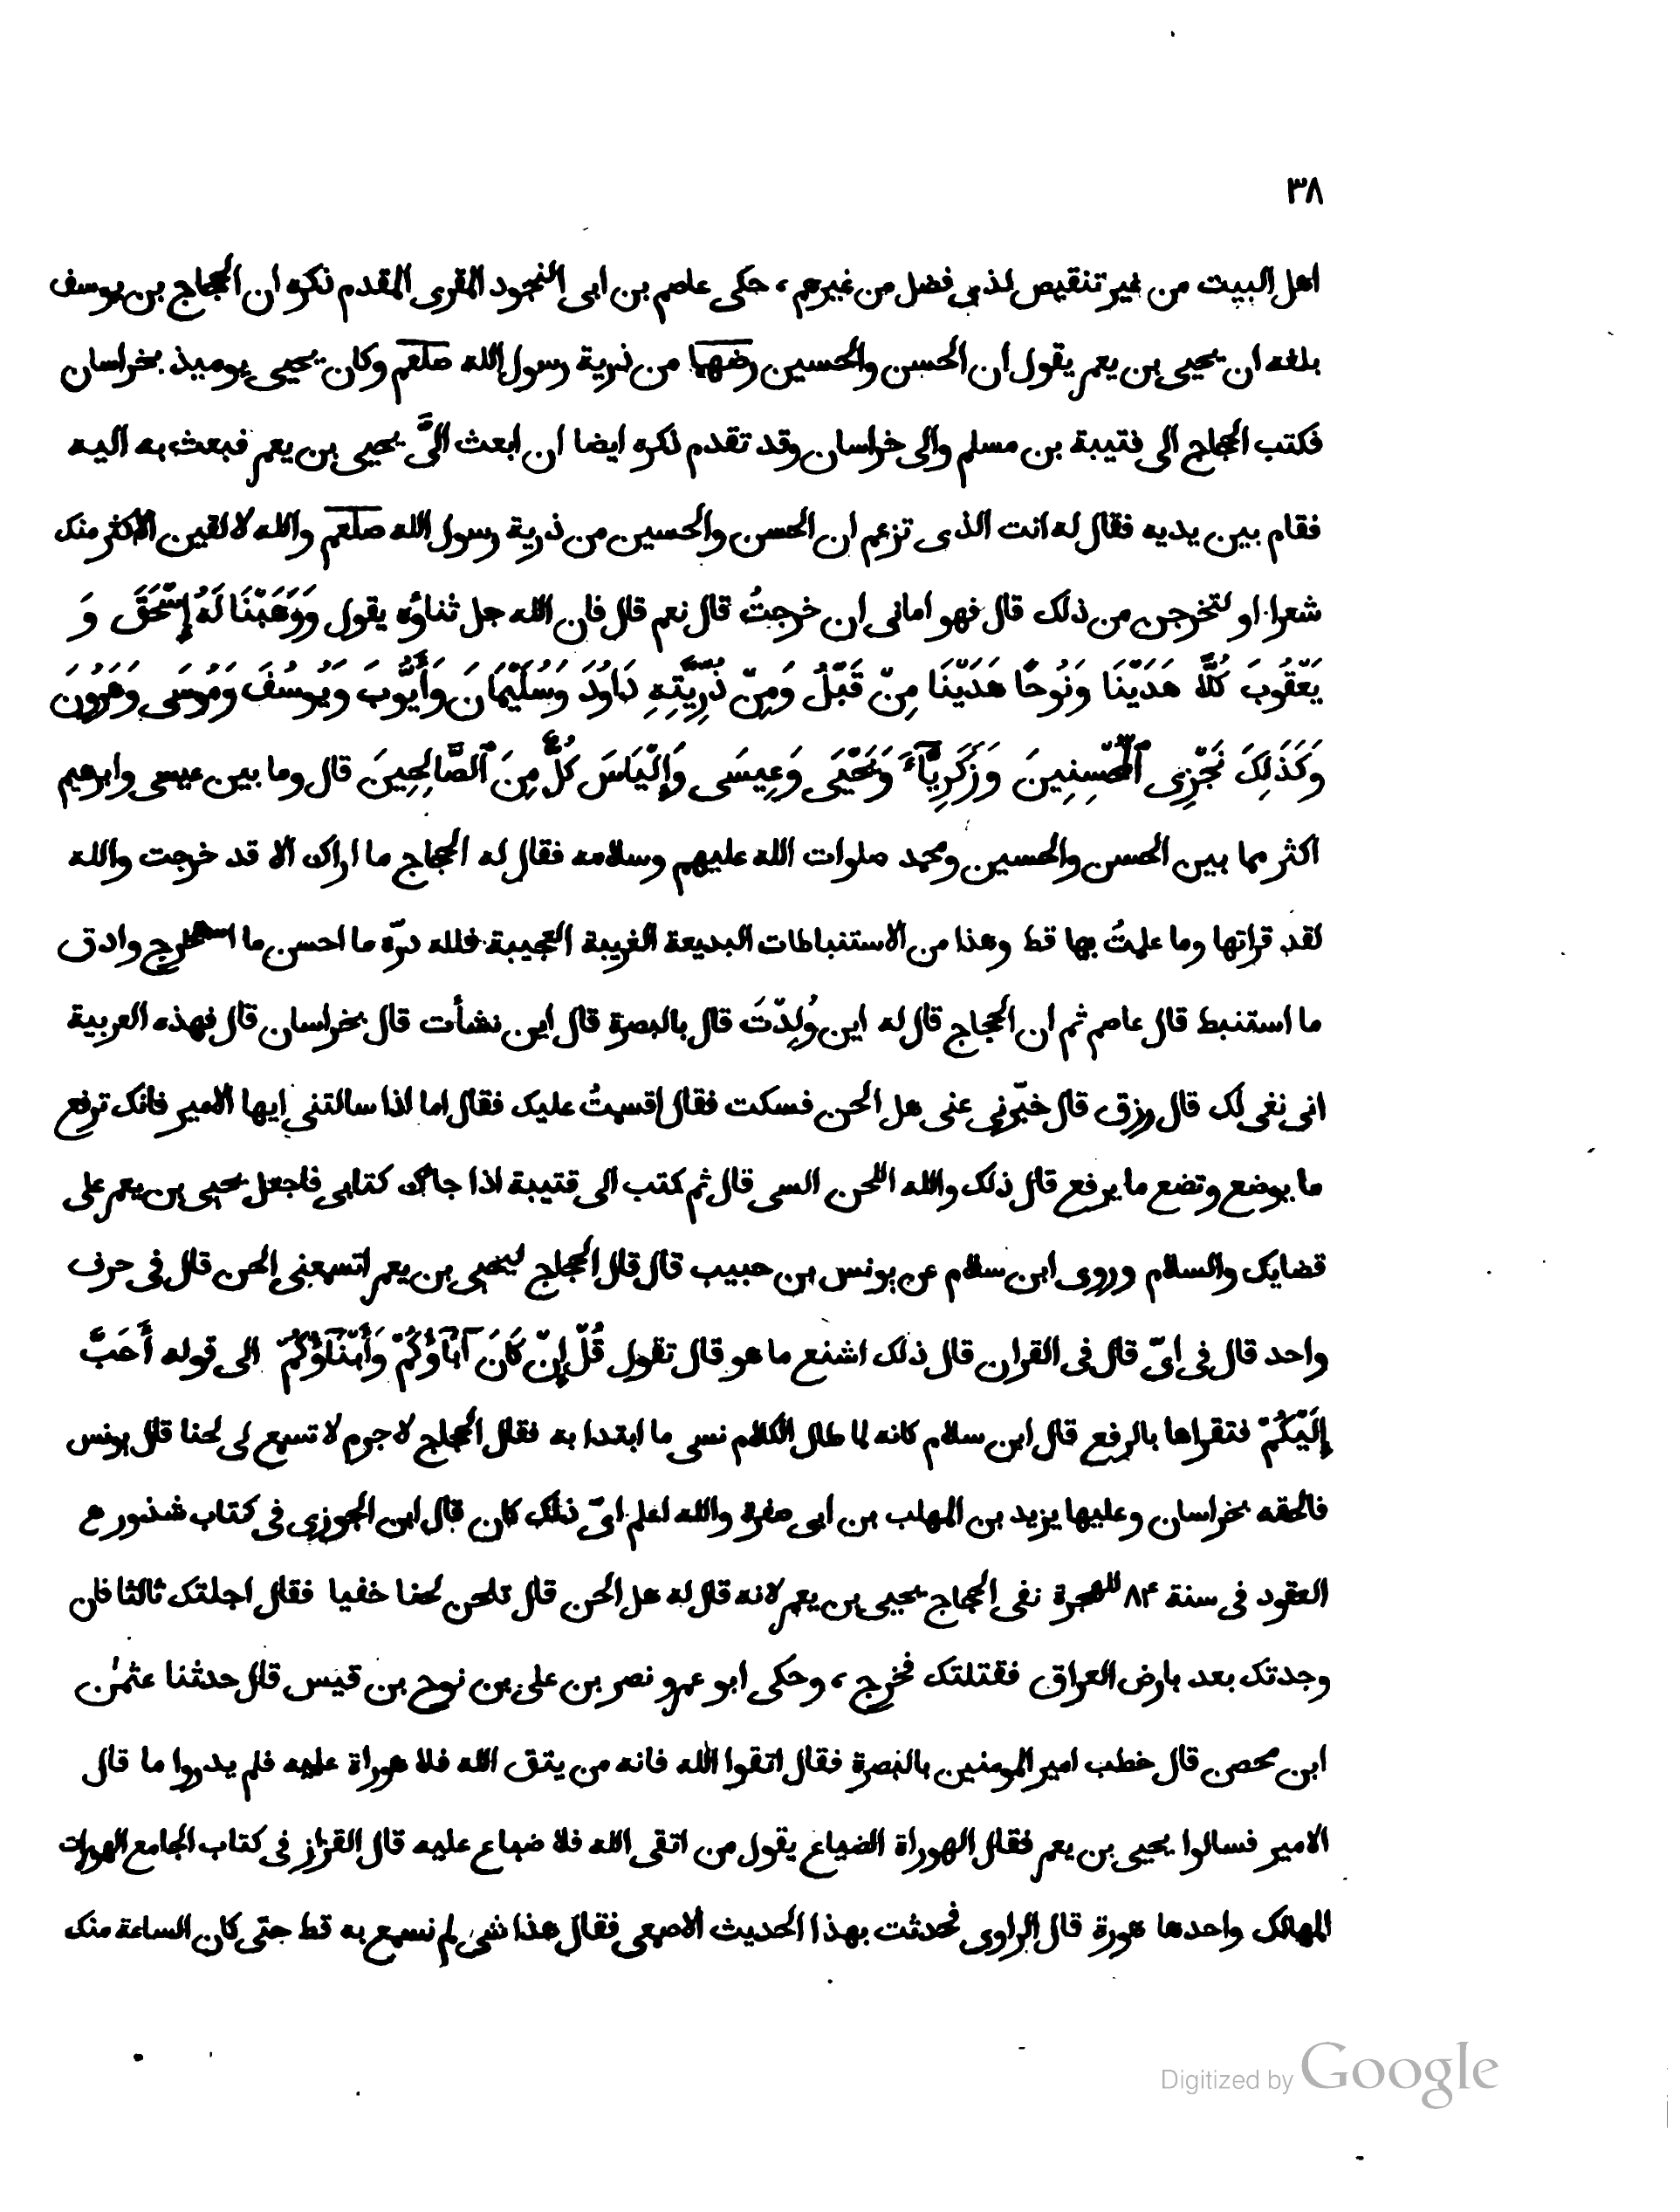 ٣٨
اهل البيت من غير تنقيص لذى فضل من غيرهم ، حكى عاصم بن ابى النجود المقرى المقدم ذكره ان الحجاج بن يوسف
بلغه ان يحيى بن يعمر يقول ان الحسن والحسين رضهما من ذرية رسول الله صلعم وكان يحيى يوميذ بخراسان
فكتب الحجاج الى قتيبة بن مسلم والى خراسان وقد تقدم ذكره ايضا ان ابعث الىَّ يحيى بن يعمر فبعث به اليه
فقام بين يديه فقال له انت الذى تزعم ان الحسن والحسين من ذرية رسول الله صلعم والله لالقين الاكثر منك
شعرا او لتخرجن من ذلك قال فهو امانى ان خرجتُ قال نعم قال فان الله جل ثناؤه يقول وَوَهَبْنَا لَهُ إِسْحَقَ وَ
يَعْقُوبَ كُلًّا هَدَيْنَا وَنُوحًا هَدَيْنَا مِنْ قَبْلُ وَمِنْ ذُرِّيَّتِهِ دَاوُدَ وَسُلَيْمَانَ وَأَيُّوبَ وَيُوسُفَ وَمُوسَى وَهَرُونَ
وَكَذَلِكَ نَجْزِى ٱلْمُحْسِنِينَ وَزَكَرِيَّآءَ وَيَحْيَى وَعِيسَى وَإِلْيَاسَ كُلٌّ مِنَ ٱلصَّالِحِينَ قال وما بين عيسى وابرهيم
اكثر مما بين الحسن والحسين ومحمد صلوات الله عليهم وسلامه فقال له الحجاج ما اراك الا قد خرجت والله
لقد قراتها وما علمتُ بها قط وهذا من الاستنباطات البديعة الغريبة العجيبة فلله درّه ما احسن ما استخرج وادق
ما استنبط قال عاصم ثم ان الحجاج قال له اين وُلِدْتَ قال بالبصرة قال اين نشأت قال بخراسان قال فهذه العربية
انى نغى لك قال رزق قال خبّرنى عنى هل الحن فسكت فقال اقسمتُ عليك فقال اما اذا سالتنى ايها الامير فانك ترفع
ما يوضع وتضع ما يرفع قال ذلك والله اللحن السى قال ثم كتب الى قتيبة اذا جاك كتابى فاجعل يحيى بن يعمر على
قضايك والسلام وروى ابن سلام عن يونس بن حبيب قال قال الحجاج ليحيى بن يعمر اتسمعنى الحن قال فى حرف
واحد قال فى اىّ قال فى القران قال ذلك اشنع ما هو قال تقول قُلْ إِنْ كَانَ آبَآؤُكُمْ وَأَبْنَآؤُكُمْ الى قوله أَحَبَّ
إِلَيْكُمْ فتقراها بالرفع قال ابن سلام كانه لما طال الكلام نسى ما ابتدا به فقال الحجاج لا جرم لا تسمع لى لحنا قال يونس
فالحقه بخراسان وعليها يزيد بن المهلب بن ابى صفرة والله اعلم اىّ ذلك كان قال ابن الجوزى فى كتاب شذور ع
العقود فى سنة ٨٤ للهجرة نفى الحجاج يحيى بن يعمر لانه قال له هل الحن قال تلحن لحنا خفيا فقال اجلتك ثالثا فان
وجدتك بعد بارض العراق فقتلتك فخرج ، وحكى ابو عمرو نصر بن على بن نوح بن قيس قال حدثنا عثمٰن
ابن محصن قال خطب امير المومنين بالبصرة فقال اتقوا الله فانه من يتق الله فلا هوراة عليه فلم يدروا ما قال
الامير فسالوا يحيى بن يعمر فقال الهوراة الضياع يقول من اتقى الله فلا ضياع عليه قال القزاز فى كتاب الجامع الهورات
المهالك واحدها هورة قال الراوى فحدثت بهذا الحديث الاصمعى فقال هذا شى لم نسمع به قط حتى كان الساعة منك
Digitized by Google